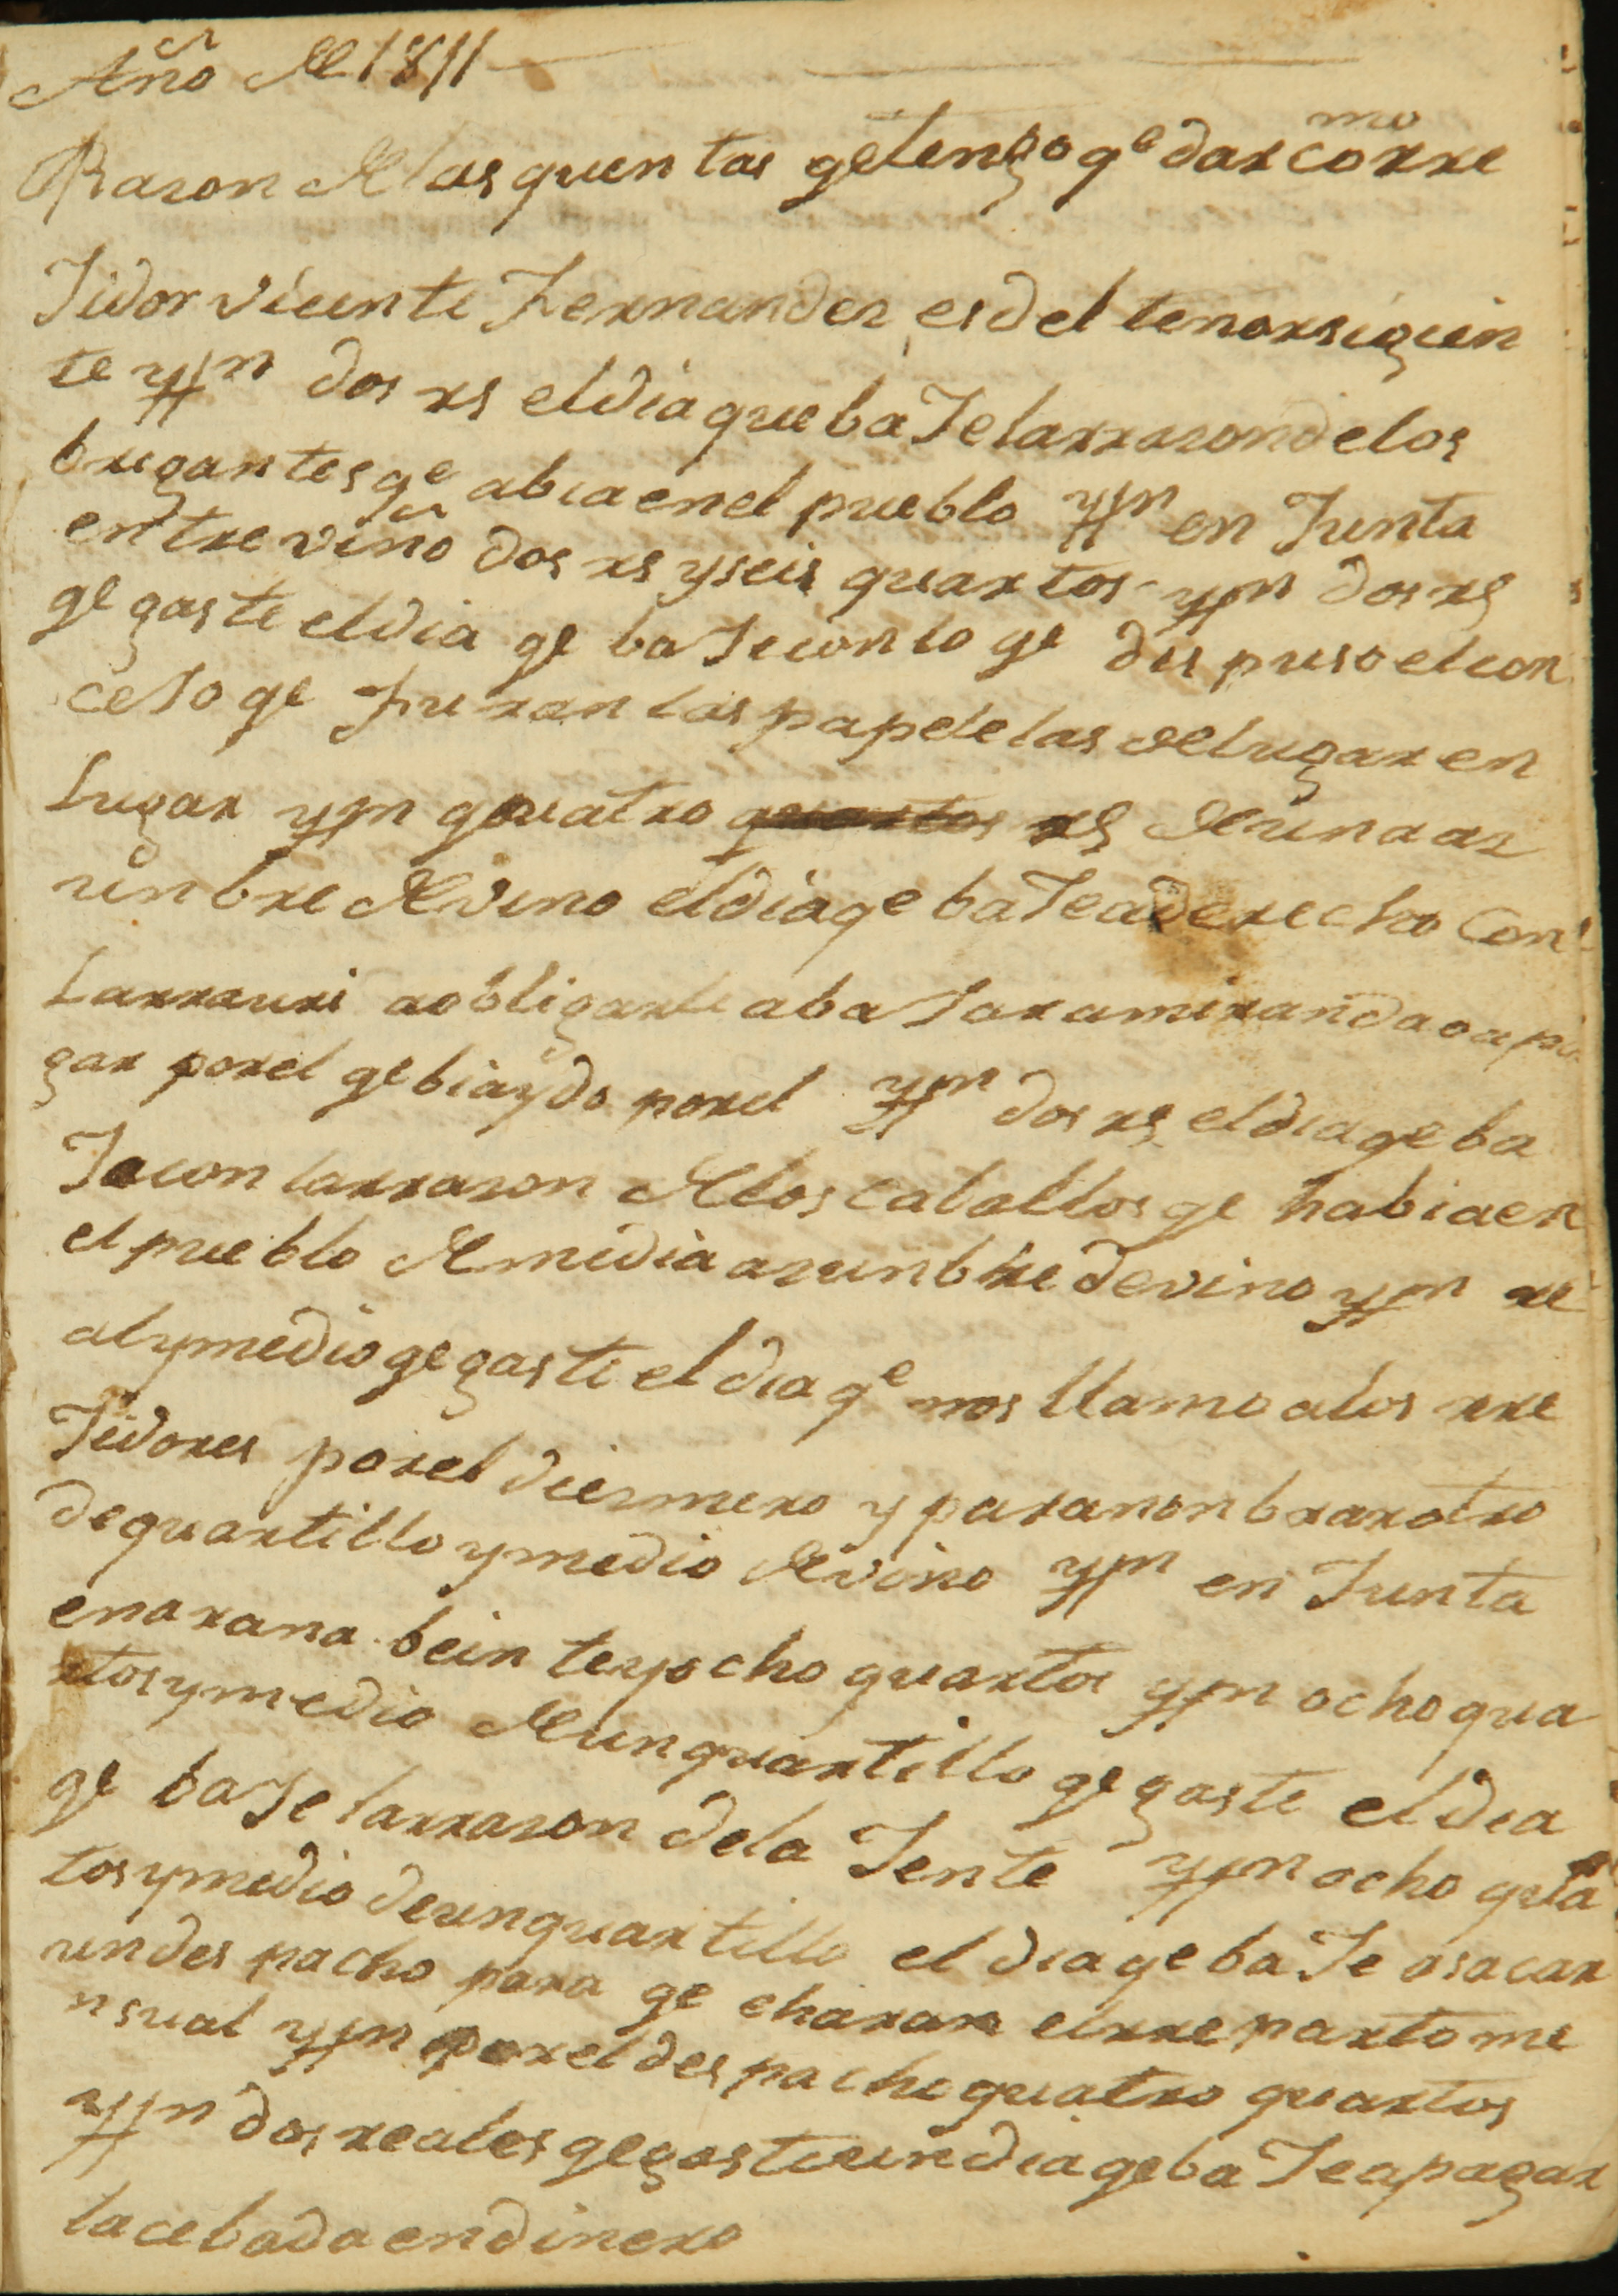 Año de 1811
Rason de las quentas qe tengo qe dar como rre
Jidor vicente Fernandez es del tenor siguien
te ytn dos rs el dia que baJe la rrazon de los
brigantes qe abia en el pueblo ytn en Junta
entre viño dos rs y seis quartos ytn dos rs
qe gaste el dia qe baJe con lo qe dispuso el con
ceJo qe fueran las papeletas de lugar en
Lugar ytn quatro quartos rs de una az
unbre de vino el dia qe baJe a derecho Con
Larrauri a obligarle a baJar a miranda o a pa
gar por el qe bia ydo por el ytn dos rs el dia qe ba
Je con la rrazon de los caballos qe habia en
el pueblo de midia azunbre de vino ytn re
al y medio qe gaste el dia qe nos llamo a los rre
Jidores por el diezmero y para nonbrar otro
de quartillo y medio de vino ytn en Junta
en arana beinte y ocho quartos ytn ocho qua
rtos y medio de un quartillo qe gaste el dia
qe baJe la rrazon de la Jente ytn ocho qua
tos y medio de un quartillo el dia qe baJe a sacar
un despacho para qe charan el rreparto me
nsual ytn por el despacho quatro quartos
ytn dos reales qe gaste un dia qe baJe a pagar
la cebada en dinero